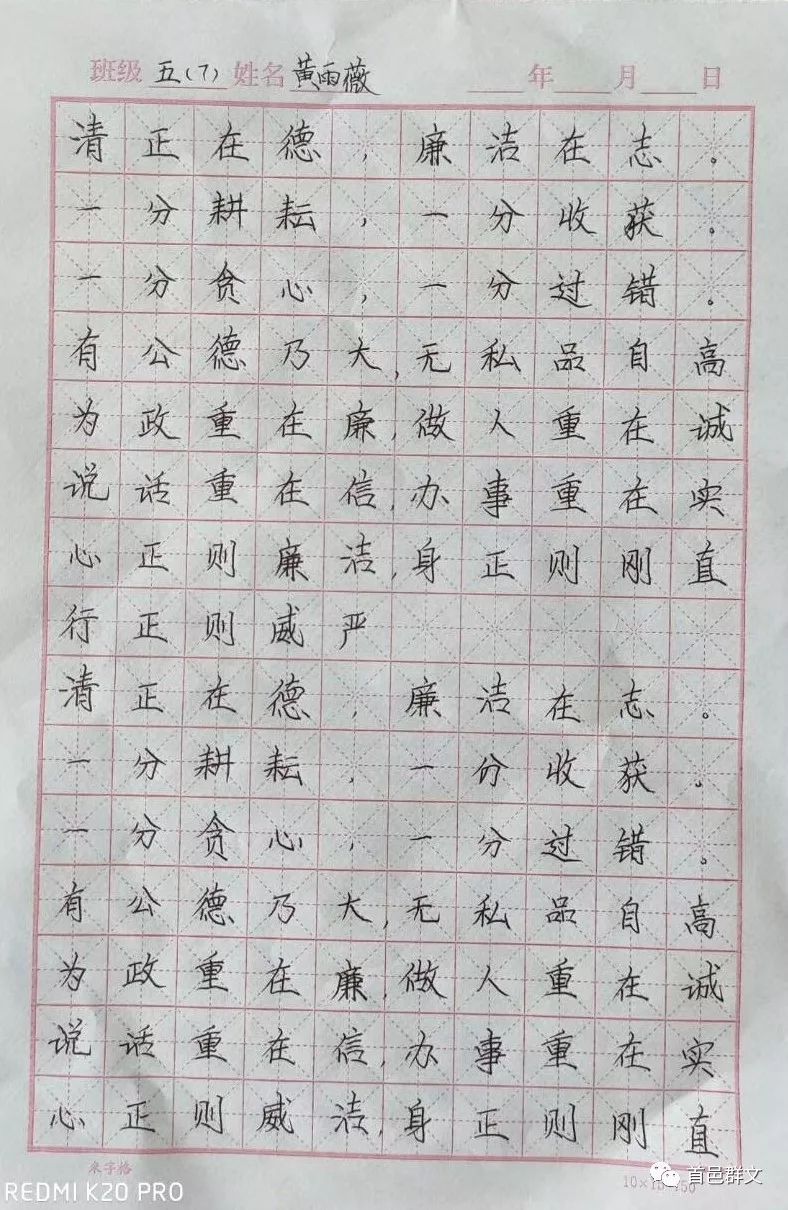 班级 五(7) 姓名 黄雨薇 年 月 日
清正在德，廉洁在志。
一分耕耘，一分收获。
一分贪心，一分过错。
有公德乃大,无私品自高
为政重在廉,做人重在诚
说话重在信,办事重在实
心正则廉洁,身正则刚直
行正则威严
清正在德，廉洁在志。
一分耕耘，一分收获。
一分贪心，一分过错。
有公德乃大,无私品自高
为政重在廉,做人重在诚
说话重在信,办事重在实
心正则威洁,身正则刚直
米字格
首邑群文
REDMI K20 PRO